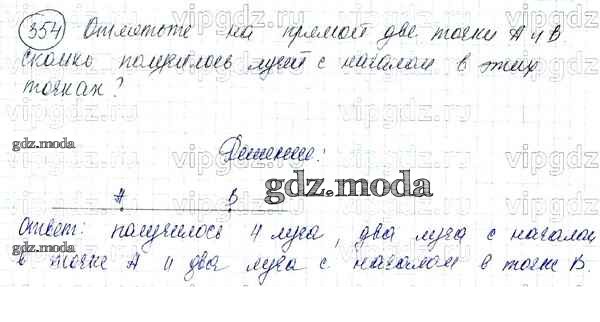 354 Отметьте на прямой две точки А и В.
Сколько получилось лучей с началом в этих
точках?
gdz.moda
Решение:
А В
gdz.moda
Ответ: получилось 4 луча, два луча с началом
в точке А и два луча с началом в точке В.